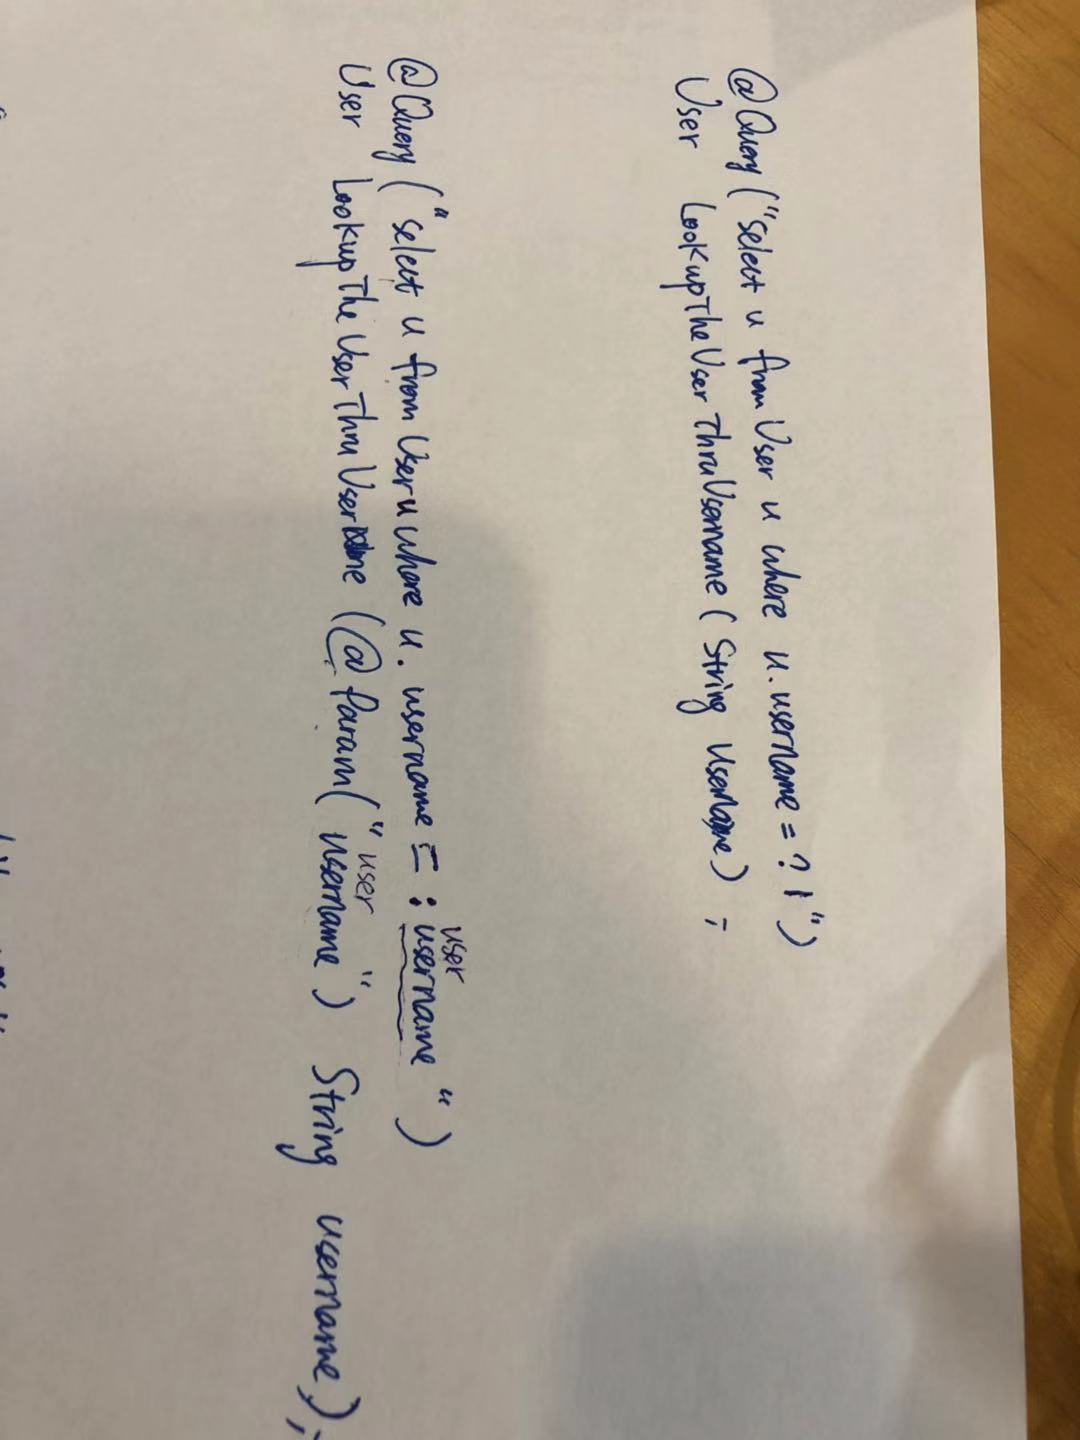 @Query ("select u from User u where u.username = ?1")
User LookupTheUserThruUsername (String username) ;
user
@Query ("select u from User u where u.username = :username")
user
User LookupTheUserThruUsername (@Param("username") String username);